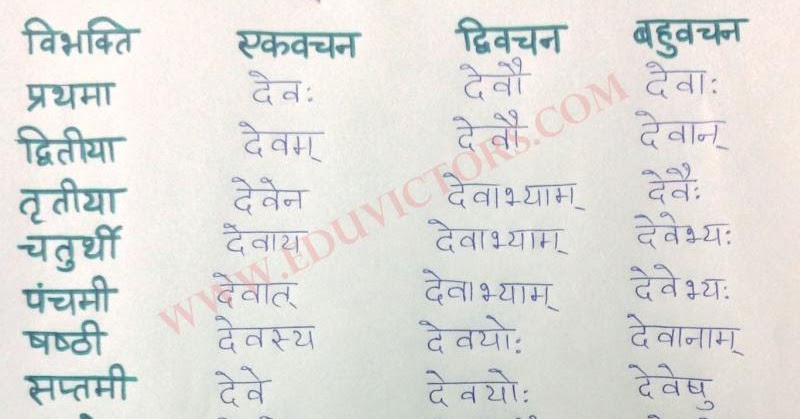 विभक्ति एकवचन द्विवचन बहुवचन
प्रथमा देवः देवौ देवाः
द्वितीया देवम् देवौ देवान्
तृतीया देवेन देवाभ्याम् देवैः
चतुर्थी देवाय देवाभ्याम् देवेभ्यः
पंचमी देवात् देवाभ्याम् देवेभ्यः
षष्ठी देवस्य देवयोः देवानाम्
सप्तमी देवे देवयोः देवेषु
WWW.EDUVICTORS.COM